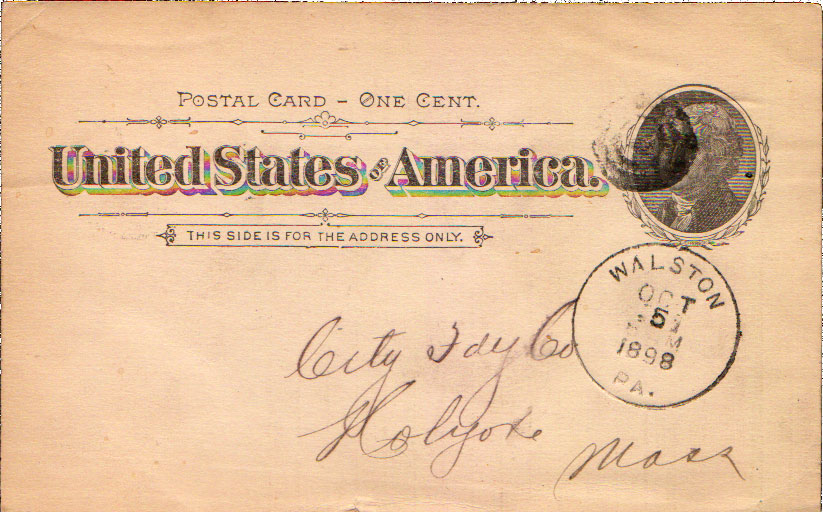 POSTAL CARD – ONE CENT.
United States OF America.
THIS SIDE IS FOR THE ADDRESS ONLY.
WALSTON
OCT
5
M
1898
PA.
City Fdy Co
Holyoke
Mass